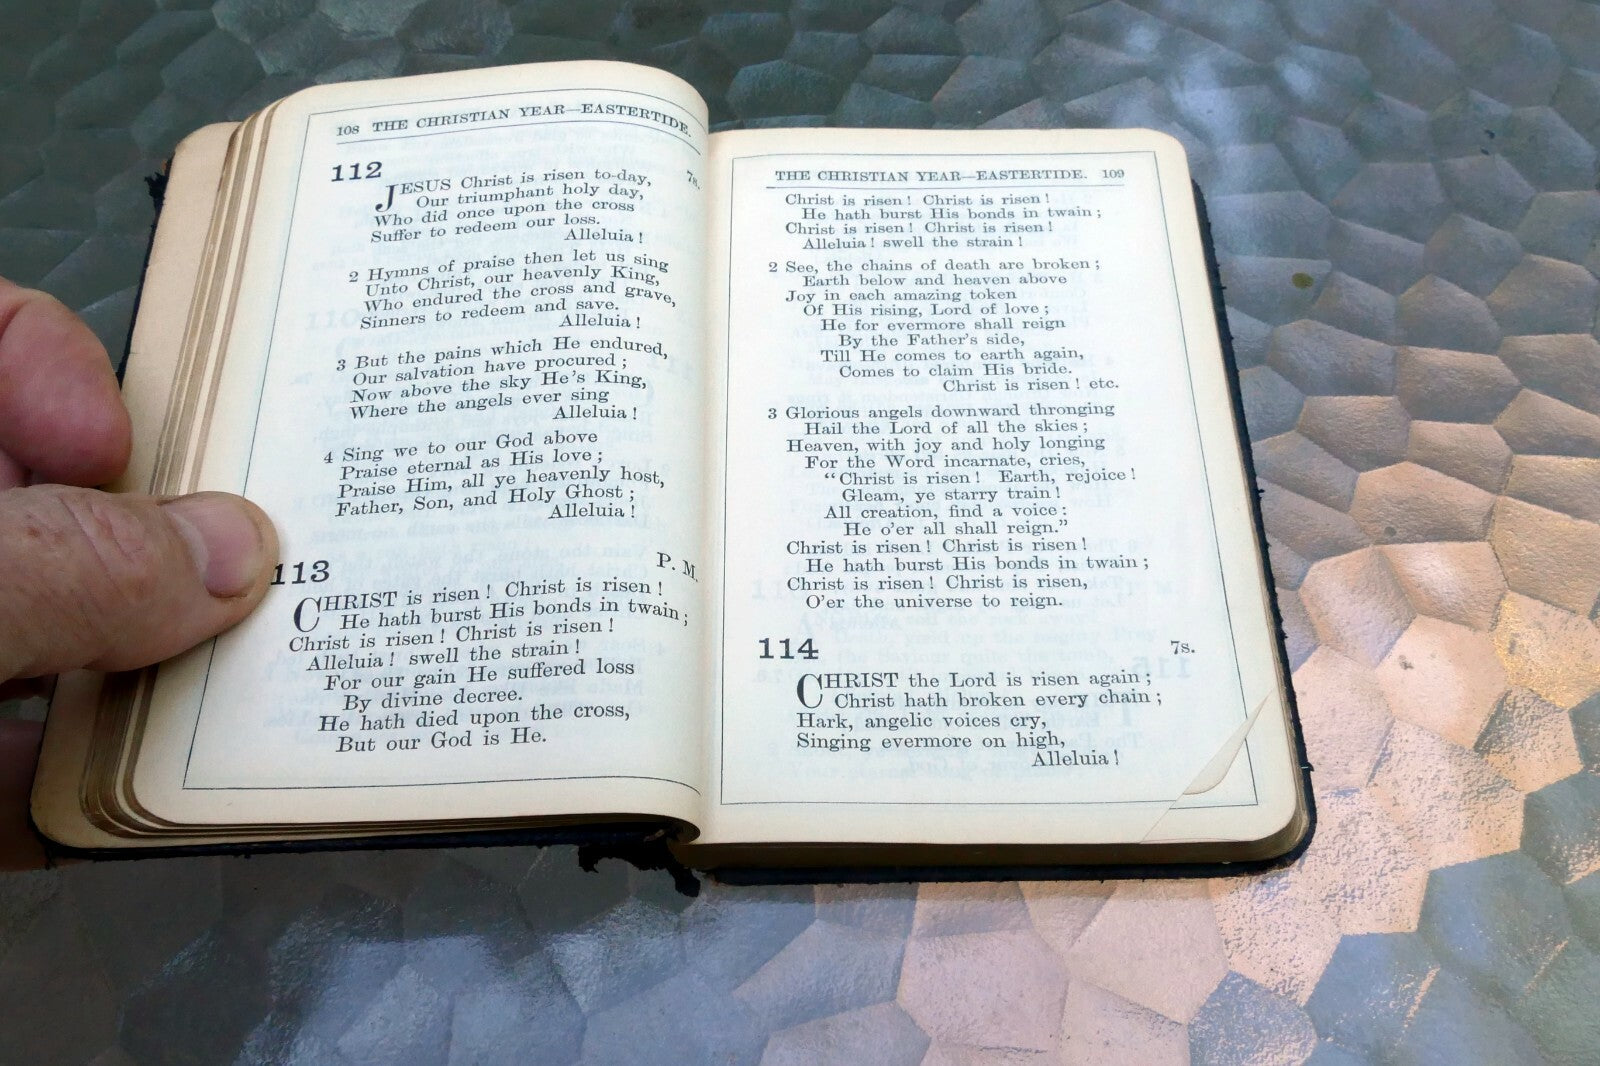 108 THE CHRISTIAN YEAR—EASTERTIDE.
112
7s.
JESUS Christ is risen to-day,
Our triumphant holy day,
Who did once upon the cross
Suffer to redeem our loss.
Alleluia!
2 Hymns of praise then let us sing
Unto Christ, our heavenly King,
Who endured the cross and grave,
Sinners to redeem and save.
Alleluia!
3 But the pains which He endured,
Our salvation have procured;
Now above the sky He's King,
Where the angels ever sing
Alleluia!
4 Sing we to our God above
Praise eternal as His love;
Praise Him, all ye heavenly host,
Father, Son, and Holy Ghost;
Alleluia!
113
P. M.
CHRIST is risen! Christ is risen!
He hath burst His bonds in twain;
Christ is risen! Christ is risen!
Alleluia! swell the strain!
For our gain He suffered loss
By divine decree.
He hath died upon the cross,
But our God is He.
THE CHRISTIAN YEAR—EASTERTIDE. 109
Christ is risen! Christ is risen!
He hath burst His bonds in twain;
Christ is risen! Christ is risen!
Alleluia! swell the strain!
2 See, the chains of death are broken;
Earth below and heaven above
Joy in each amazing token
Of His rising, Lord of love;
He for evermore shall reign
By the Father's side,
Till He comes to earth again,
Comes to claim His bride.
Christ is risen! etc.
3 Glorious angels downward thronging
Hail the Lord of all the skies;
Heaven, with joy and holy longing
For the Word incarnate, cries,
"Christ is risen! Earth, rejoice!
Gleam, ye starry train!
All creation, find a voice:
He o'er all shall reign."
Christ is risen! Christ is risen!
He hath burst His bonds in twain;
Christ is risen! Christ is risen,
O'er the universe to reign.
114
7s.
CHRIST the Lord is risen again;
Christ hath broken every chain;
Hark, angelic voices cry,
Singing evermore on high,
Alleluia!